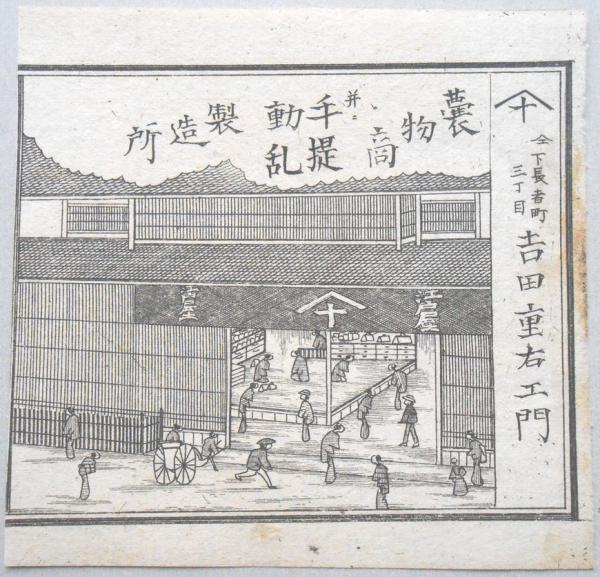 嚢物商
并ニ
手提
動乱
製造所
仝下長者町
三丁目
𠮷田重右エ門
十
江戸屋
十